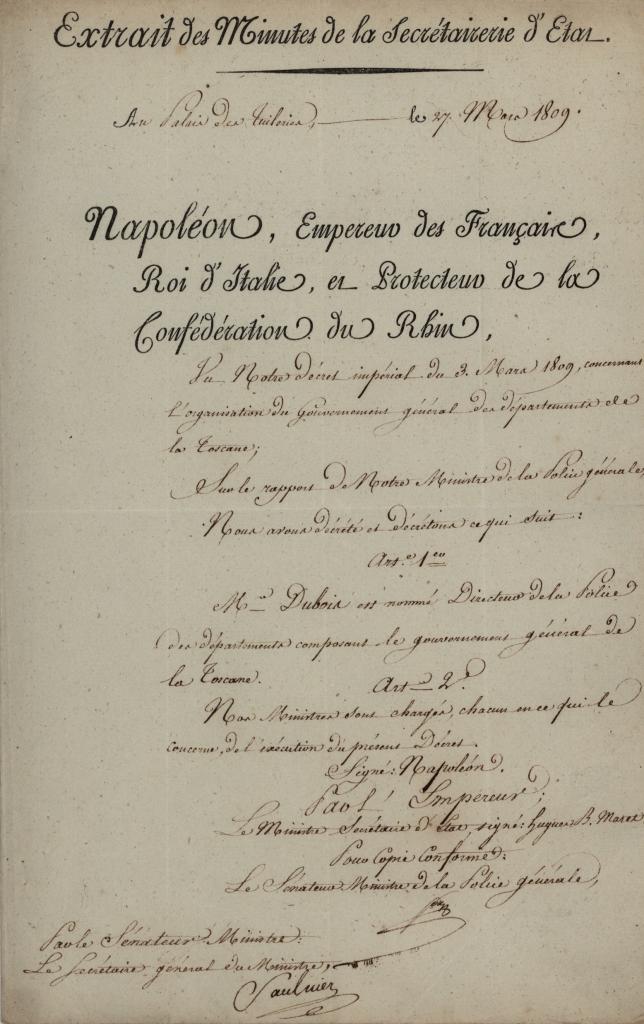 Extrait des Minutes de la Secrétairerie d'Etat.
Au Palais des Tuileries, le 27. Mars 1809.
Napoléon, Empereur des Français,
Roi d'Italie, et Protecteur de la
Confédération du Rhin,
Vu Notre décret impérial du 3. Mars 1809, concernant
l'organisation du Gouvernement général des départements de
la Toscane;
Sur le rapport de Notre Ministre de la Police générale,
Nous avons décrété et décrétons ce qui suit:
Art. 1er
Mr. Dubois est nommé Directeur de la Police
des départements composant le gouvernement général de
la Toscane.
Art. 2.
Nos Ministres sont chargés, chacun en ce qui le
concerne, de l'exécution du présent Décret.
Signé: Napoléon.
Par l'Empereur;
Le Ministre Secrétaire d'Etat, signé: hugues B. Maret
Pour Copie Conforme:
Le Sénateur Ministre de la Police générale,
Par le Sénateur Ministre:
Le Secrétaire général du Ministre,
Saulnier